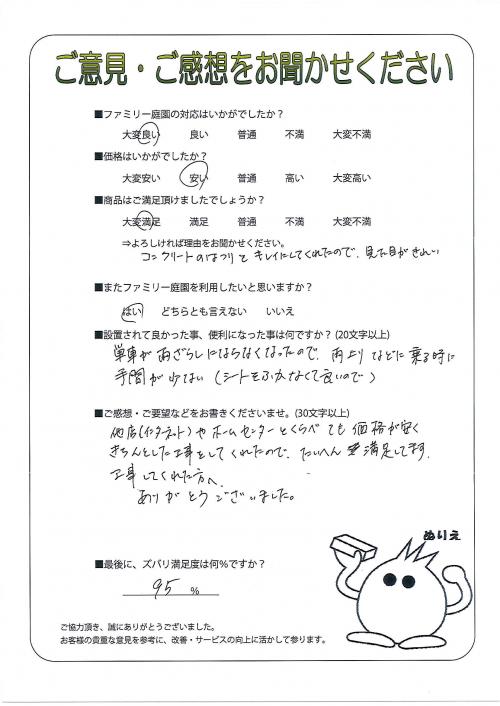 ご意見・ご感想をお聞かせください
■ファミリー庭園の対応はいかがでしたか？
大変良い 良い 普通 不満 大変不満
■価格はいかがでしたか？
大変安い 安い 普通 高い 大変高い
■商品はご満足頂けましたでしょうか？
大変満足 満足 普通 不満 大変不満
⇒よろしければ理由をお聞かせください。
コンクリートのはつりとキレイにしてくれたので、見た目がきれい
■またファミリー庭園を利用したいと思いますか？
はい どちらとも言えない いいえ
■設置されて良かった事、便利になった事は何ですか？(20文字以上)
単車が雨ざらしにならなくなったので、雨上りなどに乗る時に
手間が少ない(シートをふかなくて良いので)
■ご感想・ご要望などをお書きくださいませ。(30文字以上)
他店(インターネット)やホームセンターとくらべても価格が安く
きちんとした工事をしてくれたので、たいへん満足してます。
工事してくれた方へ、
ありがとうございました。
ぬりえ
■最後に、ズバリ満足度は何％ですか？
95 %
ご協力頂き、誠にありがとうございました。
お客様の貴重な意見を参考に、改善・サービスの向上に活かして参ります。